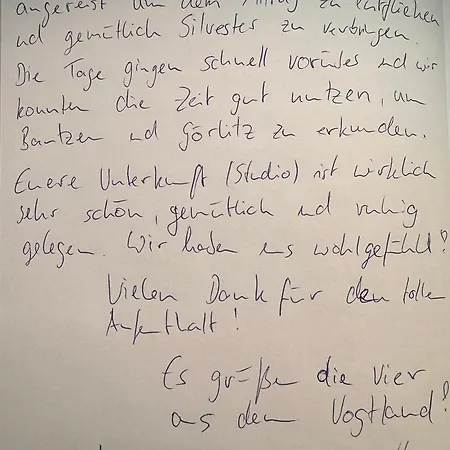 angereist um dem Alltag zu entfliehen
und gemütlich Silvester zu verbringen.
Die Tage gingen schnell vorüber und wir
konnten die Zeit gut nutzen, um
Bautzen und Görlitz zu erkunden.
Euere Unterkunft (Studio) ist wirklich
sehr schön, gemütlich und ruhig
gelegen. Wir haben uns wohlgefühlt!
Vielen Dank für den tollen
Aufenthalt!
Es grüßen die Vier
aus dem Vogtland!